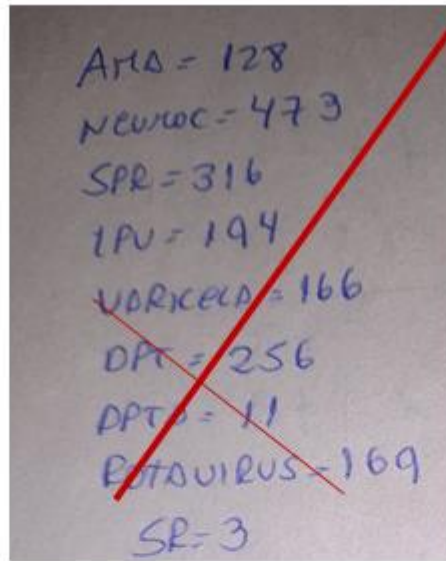 AMA = 128
NEUMOC = 473
SPR = 316
IPV = 194
VARICELA = 166
DPT = 256
= 11
ROTAVIRUS = 169
SR = 3